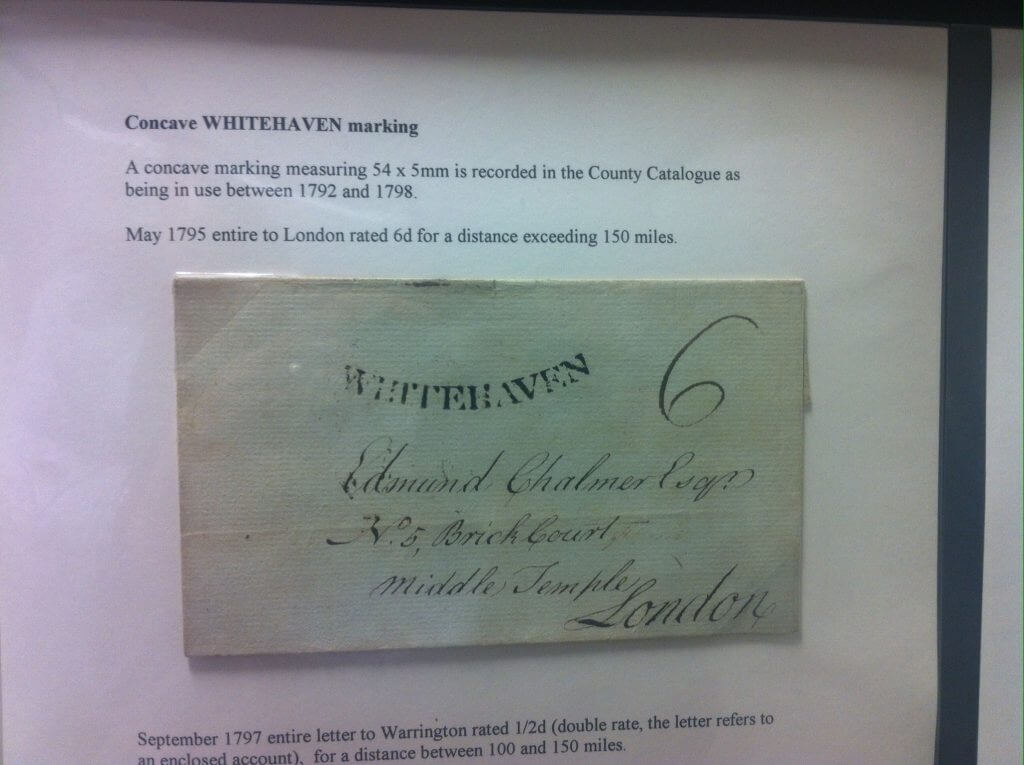 Concave WHITEHAVEN marking
A concave marking measuring 54 x 5mm is recorded in the County Catalogue as
being in use between 1792 and 1798.
May 1795 entire to London rated 6d for a distance exceeding 150 miles.
WHITEHAVEN
6
Edmund Chalmer Esqr
No. 5, Brick Court,
Middle Temple
London
September 1797 entire letter to Warrington rated 1/2d (double rate, the letter refers to
an enclosed account), for a distance between 100 and 150 miles.